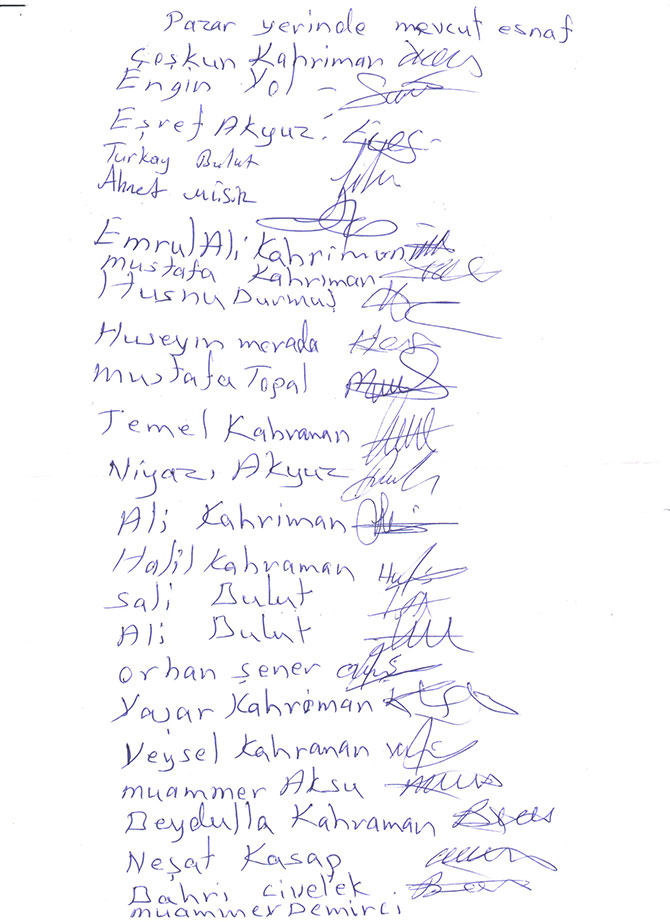 Pazar yerinde mevcut esnaf
Çoşkun Kahriman
Engin Yol
Eşref Akyuz
Turkay Bulut
Ahmet Misir
Emrul Ali Kahriman
Mustafa Kahriman
Husnu Durmuş
Huseyin merada
Mustafa Topal
Temel Kahraman
Niyazi Akyuz
Ali Kahriman
Halil Kahraman
Sali Bulut
Ali Bulut
orhan şener
Yaşar Kahriman
Veysel Kahraman
muammer Aksu
Beydulla Kahraman
Neşat Kasap
Bahri civelek
muammer Demirci